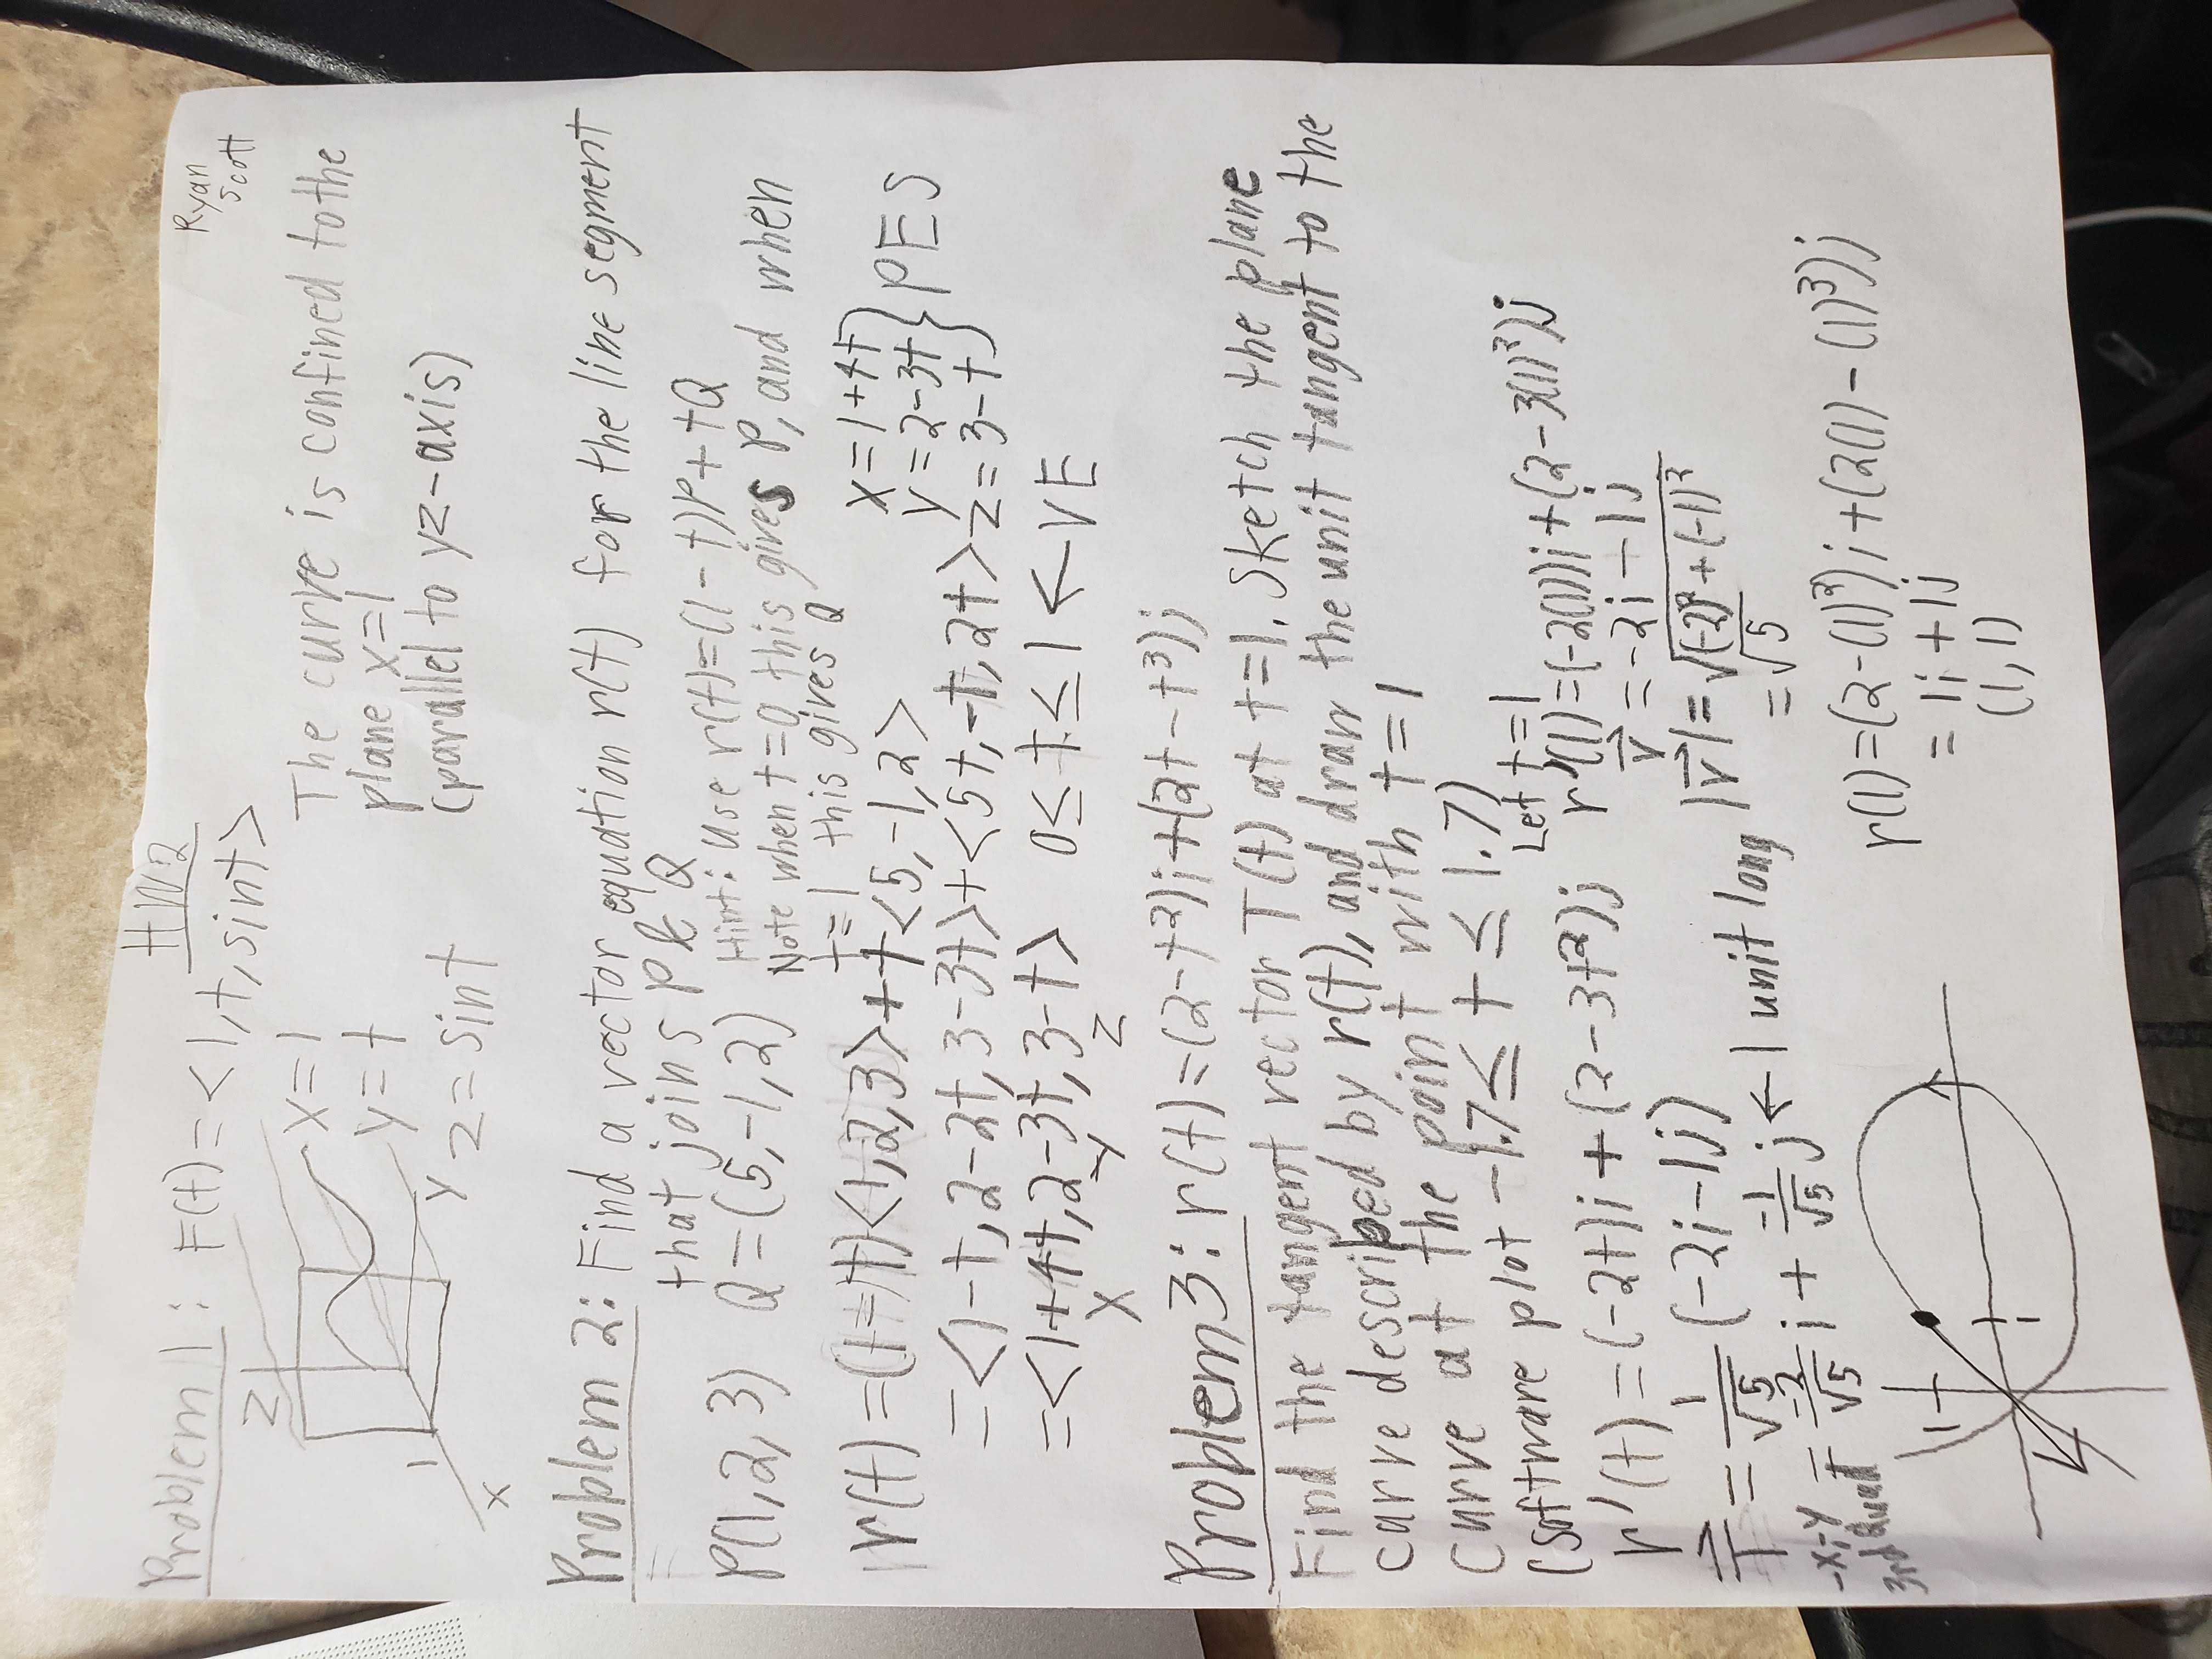 HW2
Ryan
Scott
Problem 1: F(t) = <1, t, sint>
z
x=1
y=t
z=sint
1
y
x
The curve is confined to the
plane x=1
(parallel to yz-axis)
Problem 2: Find a vector equation r(t) for the line segment
that joins P & Q
P(1,2,3) Q=(5,-1,2) Hint: Use r(t)=(1-t)P+tQ
Note when t=0 this gives P, and when
t=1 this gives Q
r(t)=(1-t)<1,2,3>+t<5,-1,2>
=<1-t,2-2t,3-3t>+<5t,-t,2t>
=<1+4t,2-3t,3-t> 0≤t≤1 ← VE
x y z
x=1+4t
y=2-3t
z=3-t
} PES
Problem 3: r(t)=(2-t²)i+(2t-t³)j
Find the tangent vector T(t) at t=1. Sketch the plane
curve described by r(t), and draw the unit tangent to the
curve at the point with t=1
(software plot -1.7≤t≤1.7)
r'(t)=(-2t)i+(2-3t²)j
Let t=1
r'(1)=(-2(1))i+(2-3(1)²)j
v⃗=-2i-1j
|v⃗|=√((-2)²+(-1)²)
=√5
T⃗=1/√5 (-2i-1j)
=-2/√5 i + -1/√5 j ← 1 unit long
-x,-y
3rd Quad
r(1)=(2-(1)²)i+(2(1)-(1)³)j
=1i+1j
(1,1)
1
1